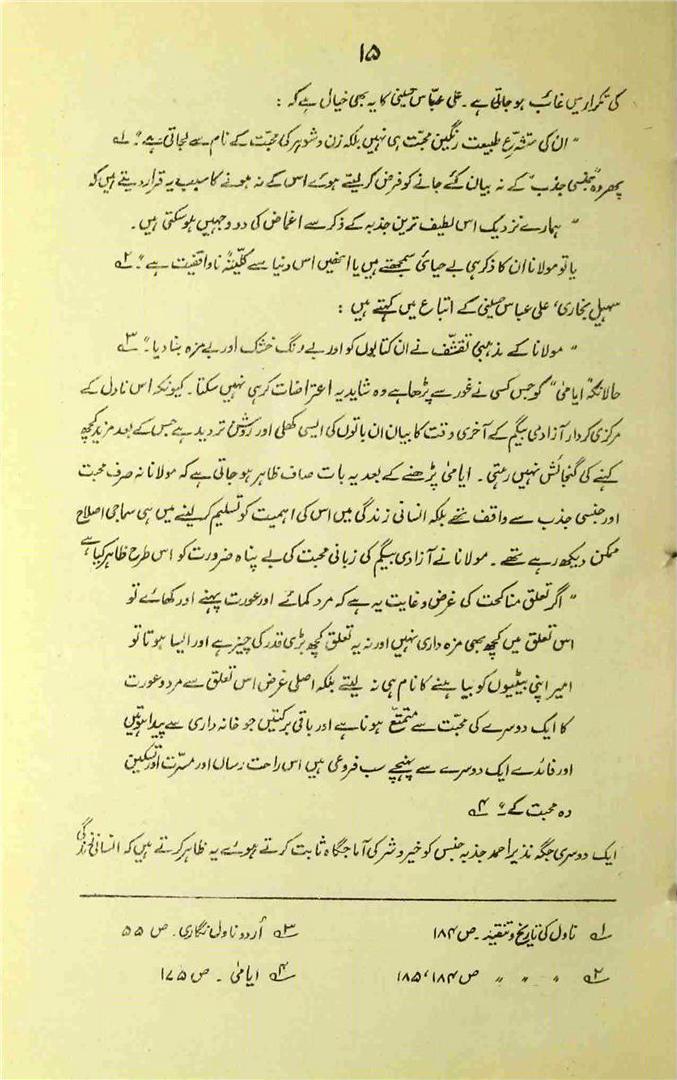 ۱۵
کی تکرار میں غائب ہو جاتی ہے۔ علی عبّاس حسینی کا یہ بھی خیال ہے کہ :
" ان کی متشرّع طبیعت رنگین محبت ہی نہیں بلکہ زن و شوہر کی محبّت کے نام سے لجاتی ہے" ۱؎
پھر وہ "جنسی جذب" کے نہ بیان کئے جانے کو فرض کر لیتے ہوئے اس کے نہ ہونے کا سبب یہ قرار دیتے ہیں کہ
" ہمارے نزدیک اس لطیف ترین جذبہ کے ذکر سے اغماض کی دو وجہیں ہو سکتی ہیں۔
یا تو مولانا ان کا ذکر ہی بے حیائی سمجھتے ہیں یا انھیں اس دنیا سے کلّیتہً ناواقفیت ہے" ۲؎
سہیل بخاری، علی عباس حسینی کے اتباع میں کہتے ہیں :
" مولانا کے مذہبی تقشّف نے ان کتابوں کو اور بے رنگ خشک اور بے مزہ بنا دیا۔" ۳؎
حالانکہ "ایامیٰ" کو جس کسی نے غور سے پڑھا ہے وہ شاید یہ اعتراضات کر ہی نہیں سکتا۔ کیونکہ اس ناول کے
مرکزی کردار آزادی بیگم کے آخری وقت کا بیان ان باتوں کی ایسی کھلی اور روشن تردید ہے جس کے بعد مزید کچھ
کہنے کی گنجائش نہیں رہتی۔ ایامیٰ پڑھنے کے بعد یہ بات صاف ظاہر ہو جاتی ہے کہ مولانا نہ صرف محبت
اور جنسی جذب سے واقف تھے بلکہ انسانی زندگی میں اس کی اہمیت کو تسلیم کر لینے میں ہی سماجی اصلاح
ممکن دیکھ رہے تھے۔ مولانا نے آزادی بیگم کی زبانی محبت کی بے پناہ ضرورت کو اس طرح ظاہر کیا ہے
" اگر تعلق مناکحت کی غرض و غایت یہ ہے کہ مرد کمائے اور عورت پہنے اور کھائے تو
اس تعلق میں کچھ بھی مزہ داری نہیں اور نہ یہ تعلق کچھ بڑی قدر کی چیز ہے اور ایسا ہوتا تو
امیر اپنی بیٹیوں کو بیاہنے کا نام ہی نہ لیتے بلکہ اصلی غرض اس تعلق سے مرد و عورت
کا ایک دوسرے کی محبّت سے متمتّع ہونا ہے اور باقی برکتیں جو خانہ داری سے پیدا ہوتیں
اور فائدے ایک دوسرے سے پہنچے سب فروعی ہیں اس راحت رساں اور مسرّت اور تسکین
دہ محبت کے" ۴؎
ایک دوسری جگہ نذیر احمد جذبہ جنس کو خیر و شر کی آماجگاہ ثابت کرتے ہوئے یہ ظاہر کرتے ہیں کہ انسانی زندگی
۱؎ ناول کی تاریخ و تنقید۔ ص ۱۸۴
۳؎ اُردو ناول نگاری۔ ص ۵۵
۲؎ " " " ص ۱۸۴، ۱۸۵
۴؎ ایامیٰ۔ ص ۱۷۵